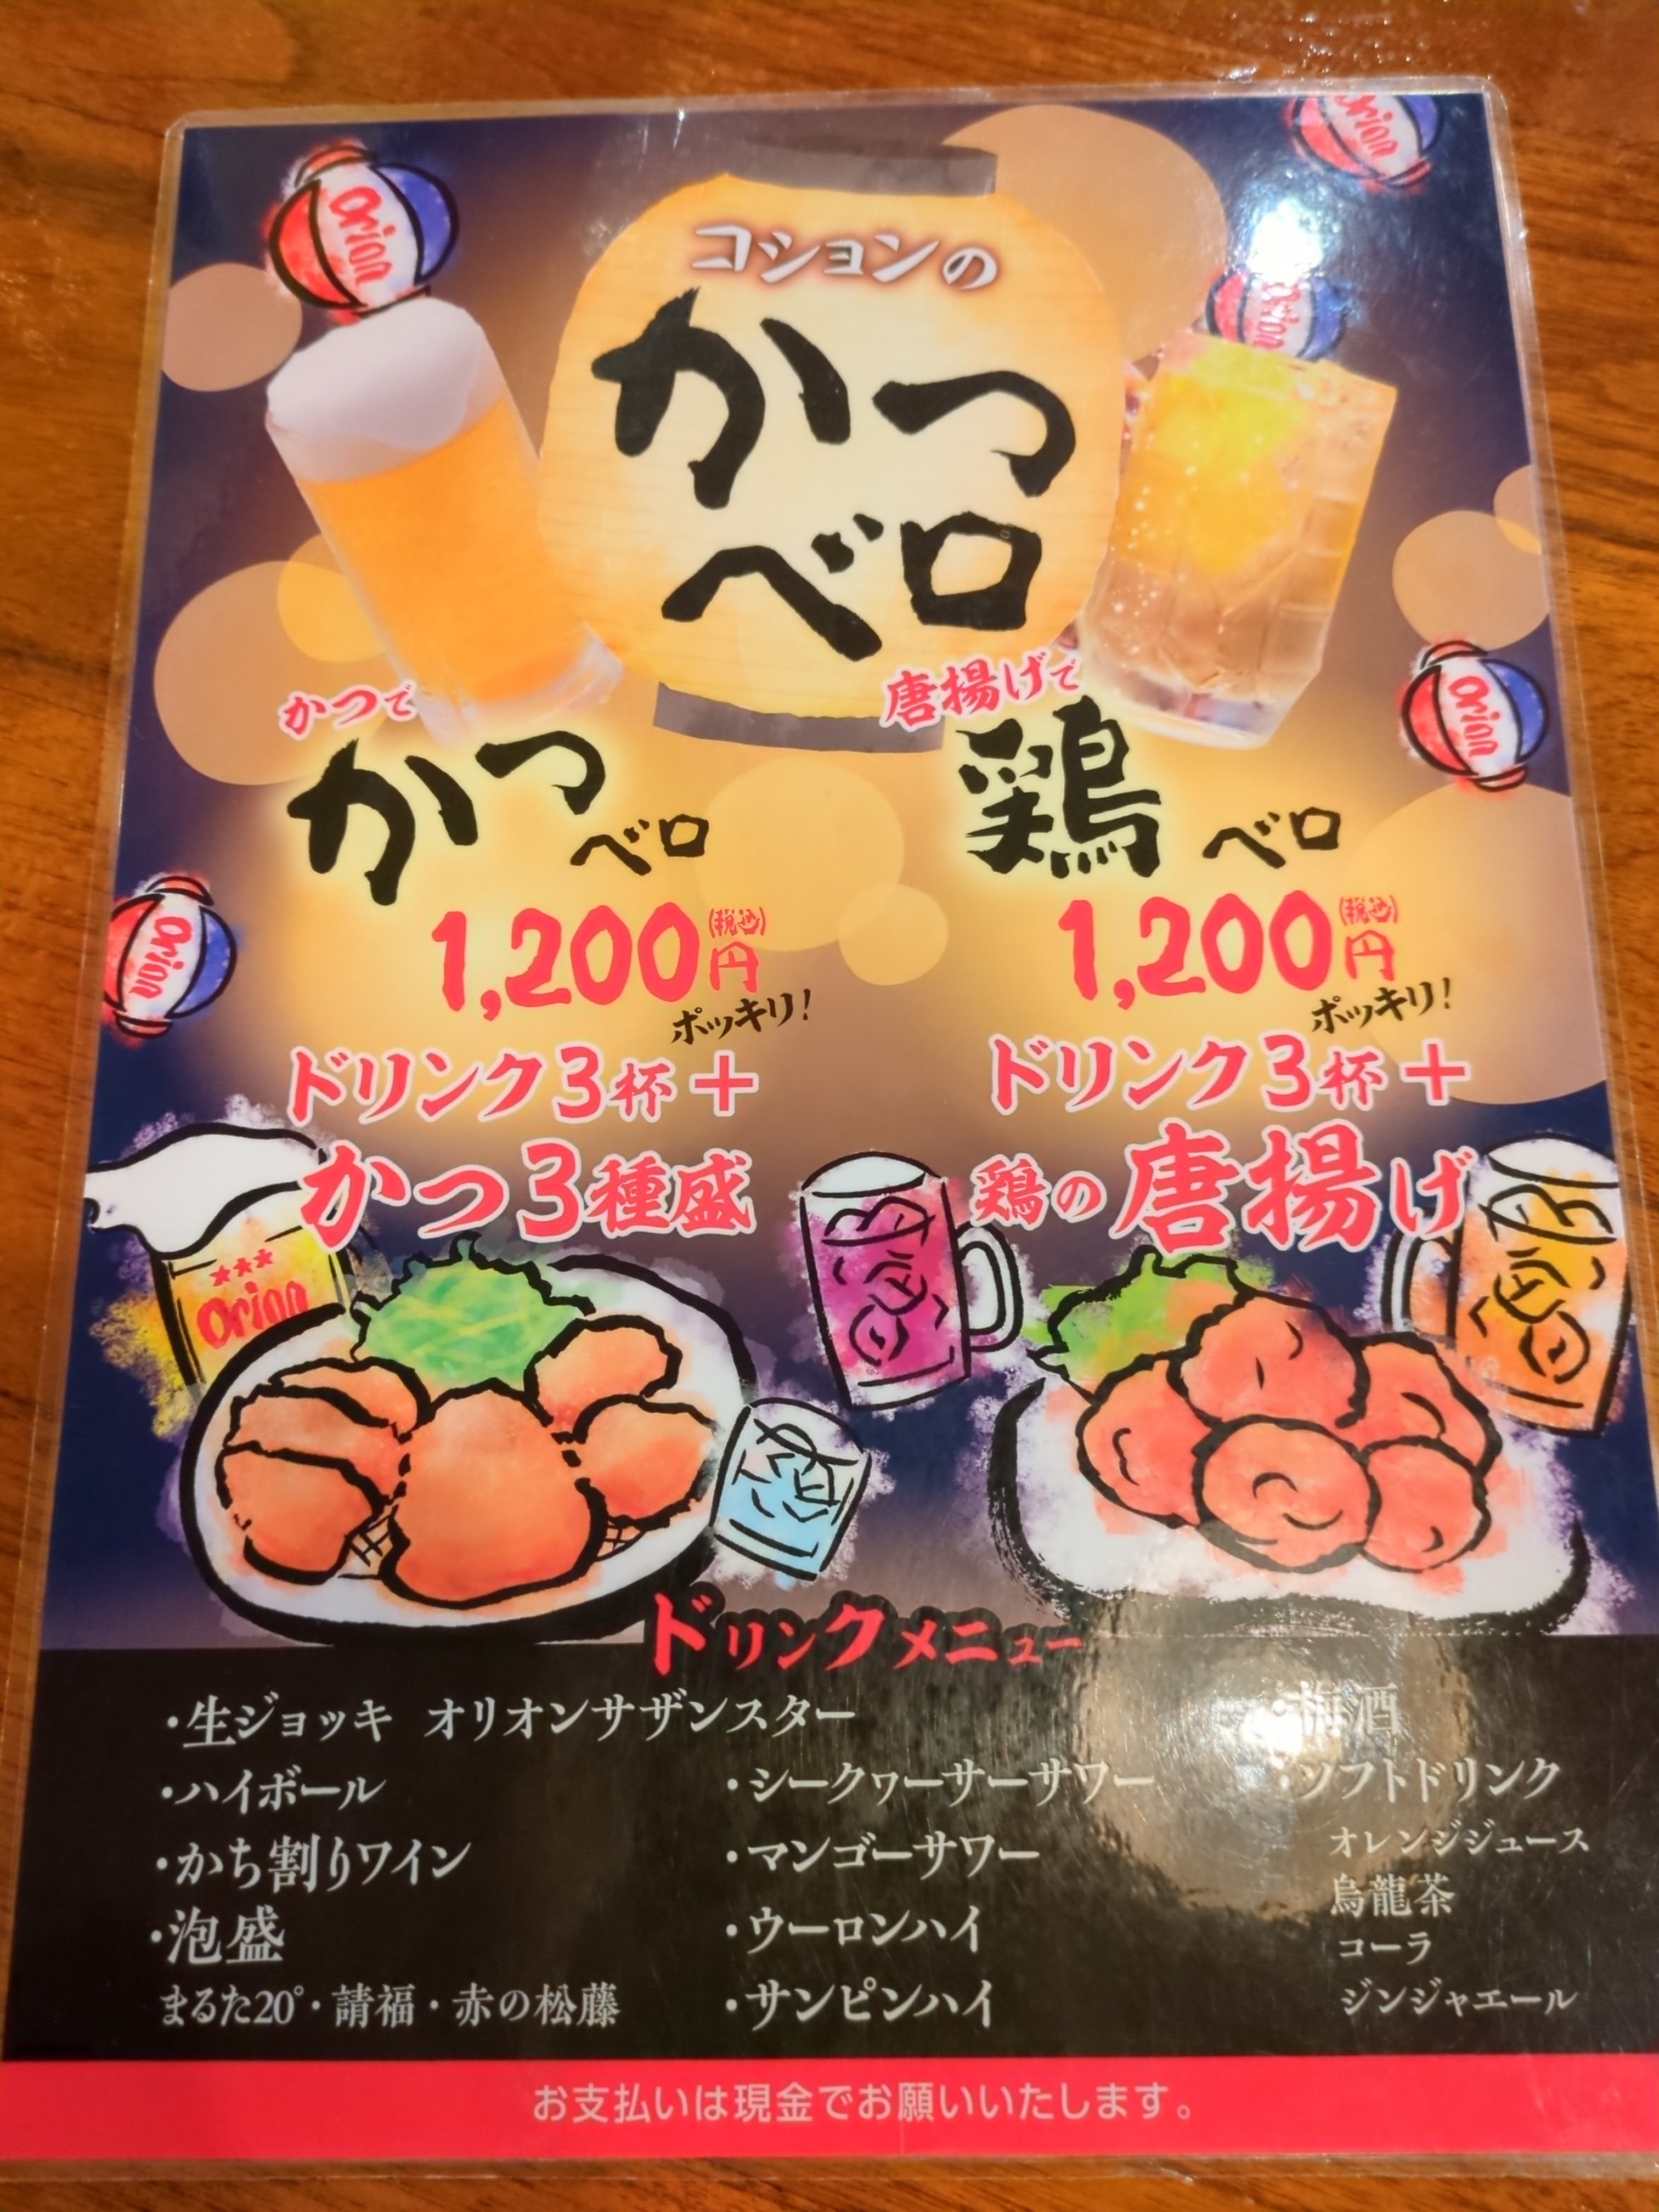 orion
orion
コションの
orion
かつ
ベロ
orion
かつで
かつベロ
1,200円(税込)
ポッキリ!
ドリンク3杯+
かつ3種盛
唐揚げで
鶏ベロ
1,200円(税込)
ポッキリ!
ドリンク3杯+
鶏の唐揚げ
orion
★★★
orion
ドリンクメニュー
・生ジョッキ オリオンサザンスター
・ハイボール
・かち割りワイン
・泡盛
まるた20°・請福・赤の松藤
・シークヮーサーサワー
・マンゴーサワー
・ウーロンハイ
・サンピンハイ
・梅酒
・ソフトドリンク
オレンジジュース
烏龍茶
コーラ
ジンジャエール
お支払いは現金でお願いいたします。